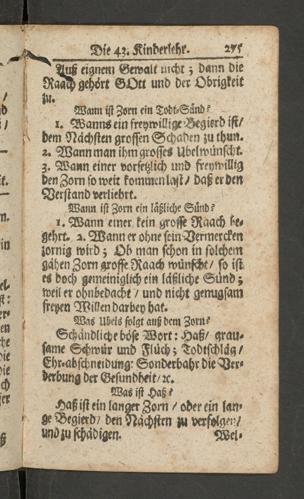 Die 43. Kinderlehr. 275
Auß eignem Gewalt nicht; dann die
Raach gehört GOtt und der Obrigkeit
zu.
Wann ist Zorn ein Todt-Sünd?
1. Wanns ein freywillige Begierd ist/
dem Nächsten grossen Schaden zu thun.
2. Wann man ihm grosses Ubel wünscht.
3. Wann einer vorsetzlich und freywillig
den Zorn so weit kommen last/ daß er den
Verstand verliehrt.
Wann ist Zorn ein läßliche Sünd?
1. Wann einer kein grosse Raach be-
gehrt. 2. Wann er ohne sein Vermercken
zornig wird; Ob man schon in solchem
gähen Zorn grosse Raach wünscht/ so ist
es doch gemeiniglich ein läßliche Sünd;
weil er ohnbedacht/ und nicht genugsam
freyen Willen darbey hat.
Was Ubels folgt auß dem Zorn?
Schändliche böse Wort: Haß/ grau-
same Schwür und Flüch; Todtschläg/
Ehr-abschneidung: Sonderbahr die Ver-
derbung der Gesundheit/ ꝛc.
Was ist Haß?
Haß ist ein langer Zorn/ oder ein lan-
ge Begierd/ den Nächsten zu verfolgen/
und zu schädigen.
Wel-